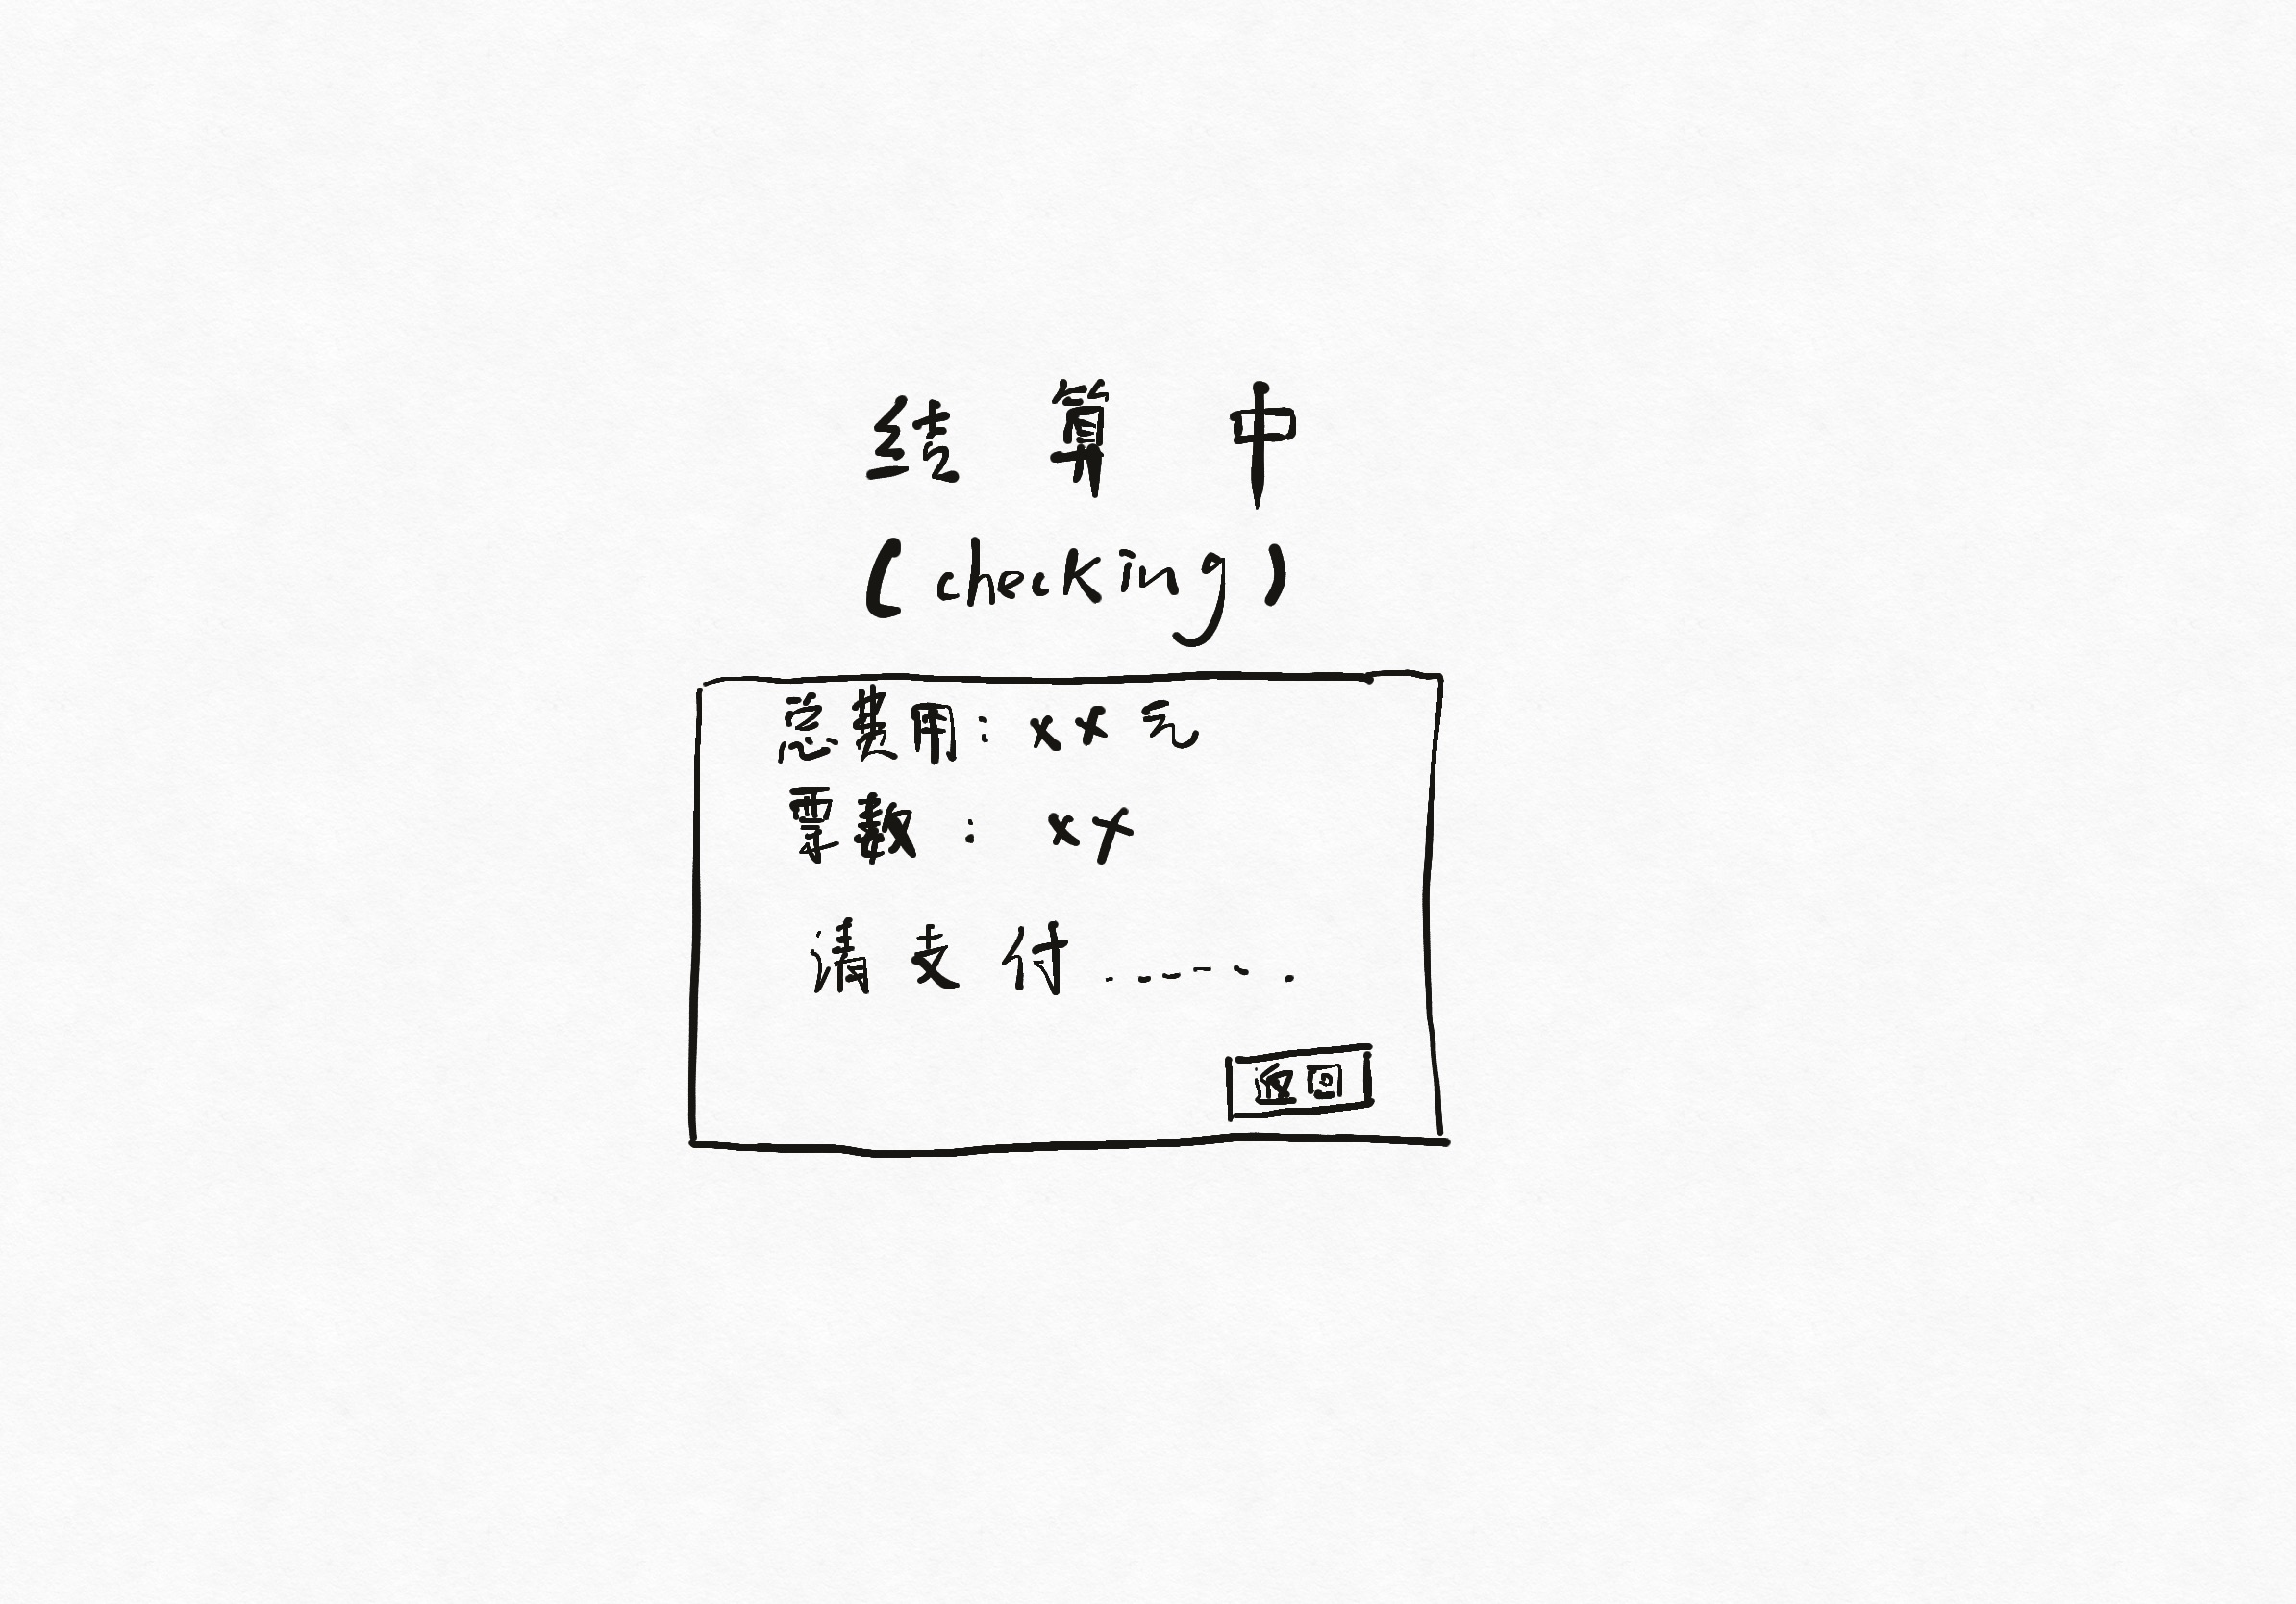 结算中
(checking)
总费用: xx 元
票数: xx
请支付......
返回